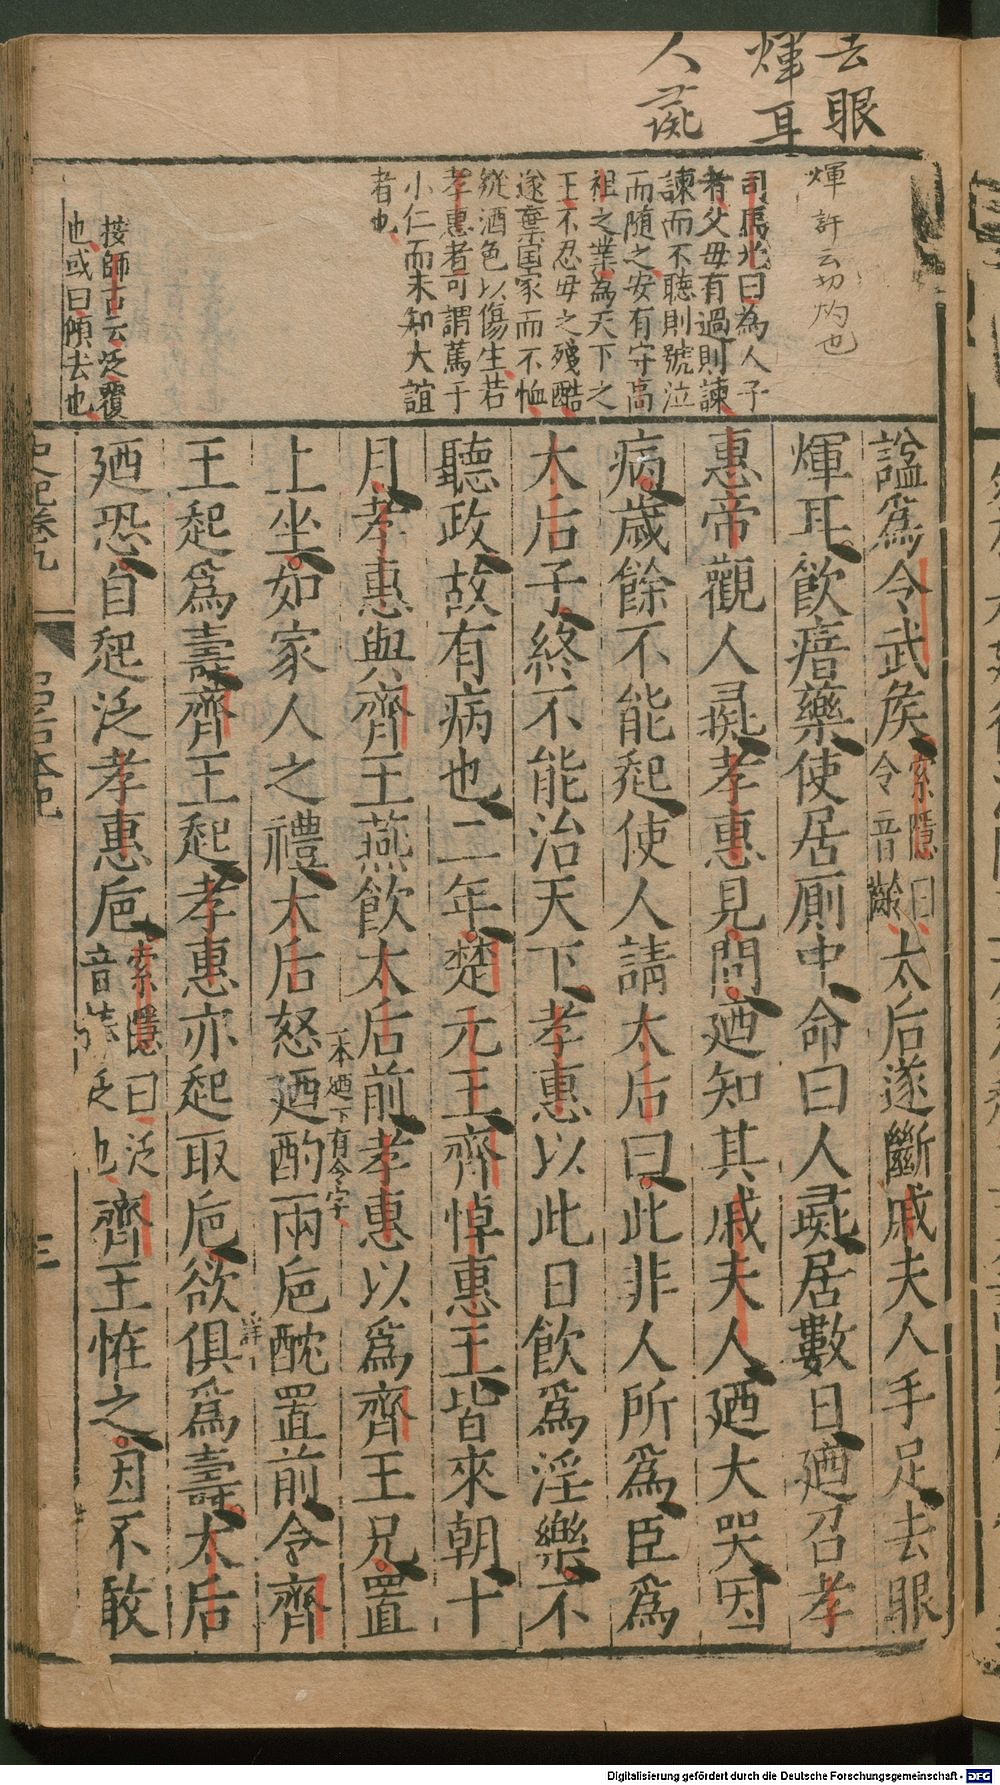 去眼
煇耳
人彘
煇許云切灼也
司馬光曰為人子
者父母有過則諫
諫而不聽則號泣
而隨之安有守高
祖之業為天下之
王不忍母之殘酷
遂棄国家而不恤
縱酒色以傷生若
孝惠者可謂篤于
小仁而未知大誼
者也
按師古云泛覆
也或曰傾去也
諡爲令武矦索隱曰令音齡太后遂斷戚夫人手足去眼
煇耳飮瘖藥使居厠中命曰人彘居數日廼召孝
惠帝觀人彘孝惠見問廼知其戚夫人廼大哭因
病歲餘不能起使人請太后曰此非人所爲臣爲
太后子終不能治天下孝惠以此日飮爲淫樂不
聽政故有病也二年楚元王齊悼惠王皆來朝十
月孝惠與齊王燕飮太后前孝惠以爲齊王兄置
一本廼下有令字
上坐如家人之禮太后怒廼酌兩巵酖置前令齊
王起爲壽齊王起孝惠亦起取巵欲俱爲壽太后
廼恐自起泛孝惠巵索隱曰泛音捧泛也齊王恠之因不敢
史記卷九
呂后本紀
三
Digitalisierung gefördert durch die Deutsche Forschungsgemeinschaft - DFG